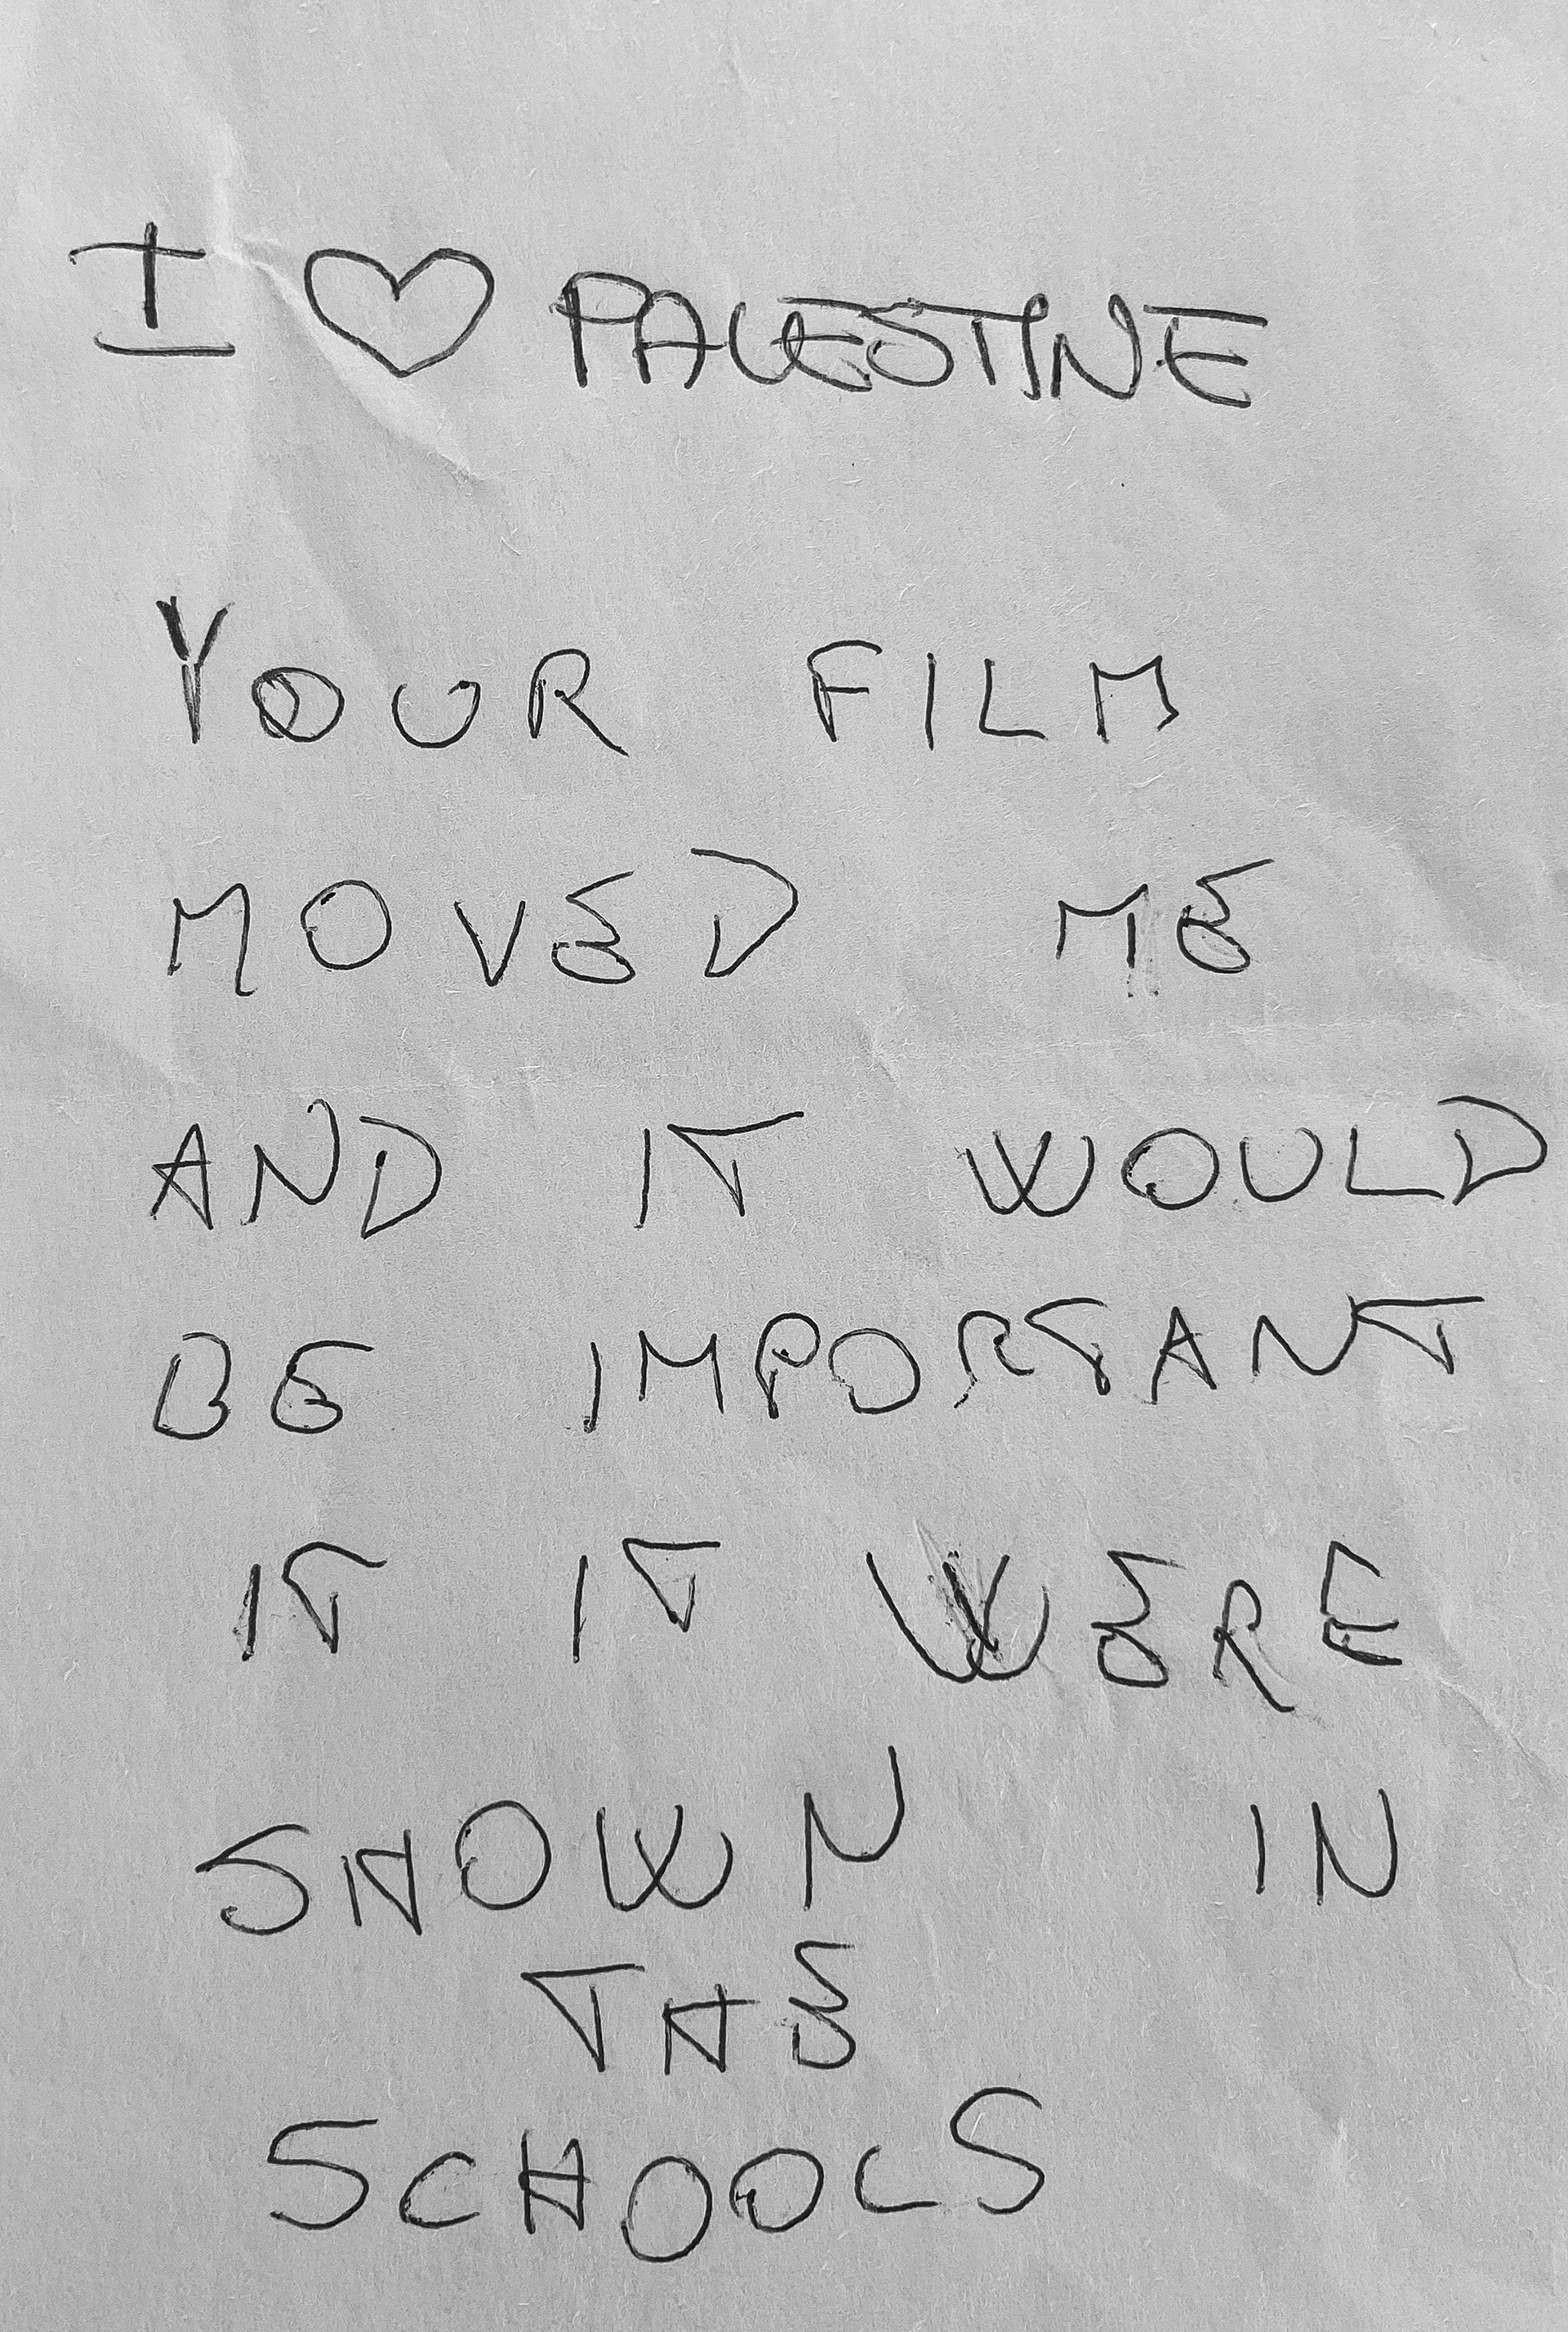 I ♡ PALESTINE
YOUR FILM
MOVED ME
AND IT WOULD
BE IMPORTANT
IT IT WERE
SHOWN IN
THE
SCHOOLS